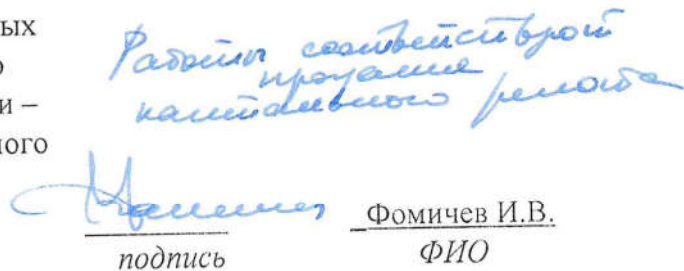 ых
Работы соответствуют
о
программе
и –
капитального ремонта
ного
Фомичев И.В.
подпись ФИО